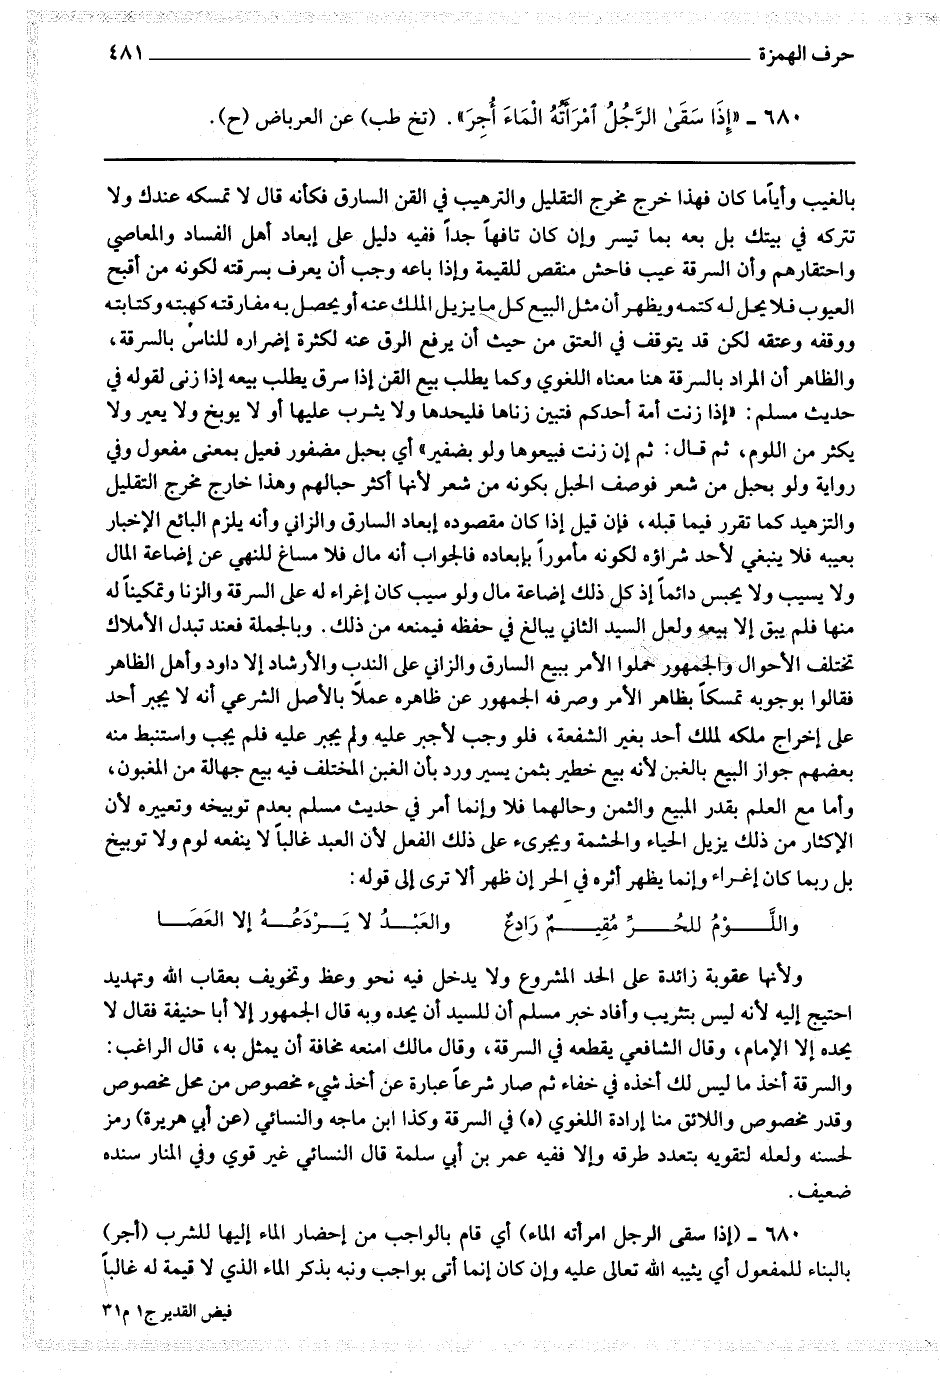 حرف الهمزة ٤٨١
٦٨٠ ـ «إِذَا سَقَىٰ الرَّجُلُ ٱمْرَأَتَهُ الْمَاءَ أُجِرَ». (تخ طب) عن العرباض (ح).
بالغيب وأياما كان فهذا خرج مخرج التقليل والترهيب في القن السارق فكأنه قال لا تمسكه عندك ولا
تتركه في بيتك بل بعه بما تيسر وإن كان تافهاً جداً ففيه دليل على إبعاد أهل الفساد والمعاصي
واحتقارهم وأن السرقة عيب فاحش منقص للقيمة وإذا باعه وجب أن يعرف بسرقته لكونه من أقبح
العيوب فلا يحل له كتمه ويظهر أن مثل البيع كل ما يزيل الملك عنه أو يحصل به مفارقته كهبته وكتابته
ووقفه وعتقه لكن قد يتوقف في العتق من حيث أن يرفع الرق عنه لكثرة إضراره للناس بالسرقة،
والظاهر أن المراد بالسرقة هنا معناه اللغوي وكما يطلب بيع القن إذا سرق يطلب بيعه إذا زنى لقوله في
حديث مسلم: «إذا زنت أمة أحدكم فتبين زناها فليحدها ولا يثرب عليها أو لا يوبخ ولا يعير ولا
يكثر من اللوم، ثم قال: ثم إن زنت فبيعوها ولو بضفير» أي بحبل مضفور فعيل بمعنى مفعول وفي
رواية ولو بحبل من شعر فوصف الحبل بكونه من شعر لأنها أكثر حبالهم وهذا خارج مخرج التقليل
والتزهيد كما تقرر فيما قبله، فإن قيل إذا كان مقصوده إبعاد السارق والزاني وأنه يلزم البائع الإخبار
بعيبه فلا ينبغي لأحد شراؤه لكونه مأموراً بإبعاده فالجواب أنه مال فلا مساغ للنهي عن إضاعة المال
ولا يسيب ولا يحبس دائماً إذ كل ذلك إضاعة مال ولو سيب كان إغراء له على السرقة والزنا وتمكيناً له
منها فلم يبق إلا بيعه ولعل السيد الثاني يبالغ في حفظه فيمنعه من ذلك. وبالجملة فعند تبدل الأملاك
تختلف الأحوال والجمهور حملوا الأمر ببيع السارق والزاني على الندب والأرشاد إلا داود وأهل الظاهر
فقالوا بوجوبه تمسكاً بظاهر الأمر وصرفه الجمهور عن ظاهره عملاً بالأصل الشرعي أنه لا يجبر أحد
على إخراج ملكه لملك أحد بغير الشفعة، فلو وجب لأجبر عليه ولم يجبر عليه فلم يجب واستنبط منه
بعضهم جواز البيع بالغبن لأنه بيع خطير بثمن يسير ورد بأن الغبن المختلف فيه بيع جهالة من المغبون،
وأما مع العلم بقدر المبيع والثمن وحالهما فلا وإنما أمر في حديث مسلم بعدم توبيخه وتعييره لأن
الإكثار من ذلك يزيل الحياء والحشمة ويجرىء على ذلك الفعل لأن العبد غالباً لا ينفعه لوم ولا توبيخ
بل ربما كان إغراء وإنما يظهر أثره في الحر إن ظهر ألا ترى إلى قوله:
واللَّـوْمُ للحُـرِّ مُقِيـمٌ رَادِعٌ والعَبْـدُ لا يَـرْدَعُـهُ إلا العَصَـا
ولأنها عقوبة زائدة على الحد المشروع ولا يدخل فيه نحو وعظ وتخويف بعقاب الله وتهديد
احتيج إليه لأنه ليس بتثريب وأفاد خبر مسلم أن للسيد أن يحده وبه قال الجمهور إلا أبا حنيفة فقال لا
يحده إلا الإمام، وقال الشافعي يقطعه في السرقة، وقال مالك امنعه مخافة أن يمثل به، قال الراغب:
والسرقة أخذ ما ليس لك أخذه في خفاء ثم صار شرعاً عبارة عن أخذ شيء مخصوص من محل مخصوص
وقدر مخصوص واللائق منا إرادة اللغوي (ه) في السرقة وكذا ابن ماجه والنسائي (عن أبي هريرة) رمز
لحسنه ولعله لتقويه بتعدد طرقه وإلا ففيه عمر بن أبي سلمة قال النسائي غير قوي وفي المنار سنده
ضعيف.
٦٨٠ ـ (إذا سقى الرجل امرأته الماء) أي قام بالواجب من إحضار الماء إليها للشرب (أجر)
بالبناء للمفعول أي يثيبه الله تعالى عليه وإن كان إنما أتى بواجب ونبه بذكر الماء الذي لا قيمة له غالباً
فيض القدير ج١ م٣١